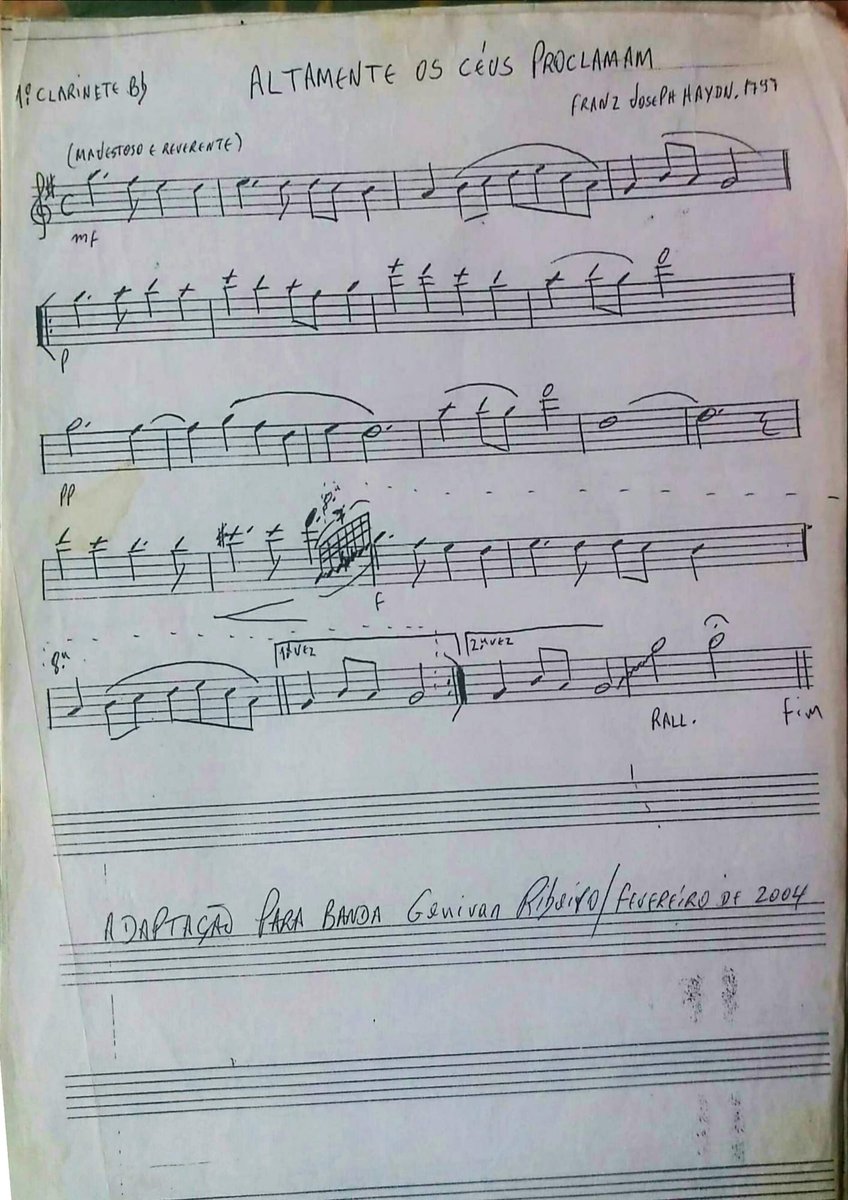 1º CLARINETE Bb
ALTAMENTE OS CÉUS PROCLAMAM
FRANZ JOSEPH HAYDN, 1797
(MAJESTOSO E REVERENTE)
mf
p
pp
8ª
f
8ª
1ª VEZ
2ª VEZ
RALL.
Fim
ADAPTAÇÃO PARA BANDA Genivan Ribeiro/FEVEREIRO DE 2004